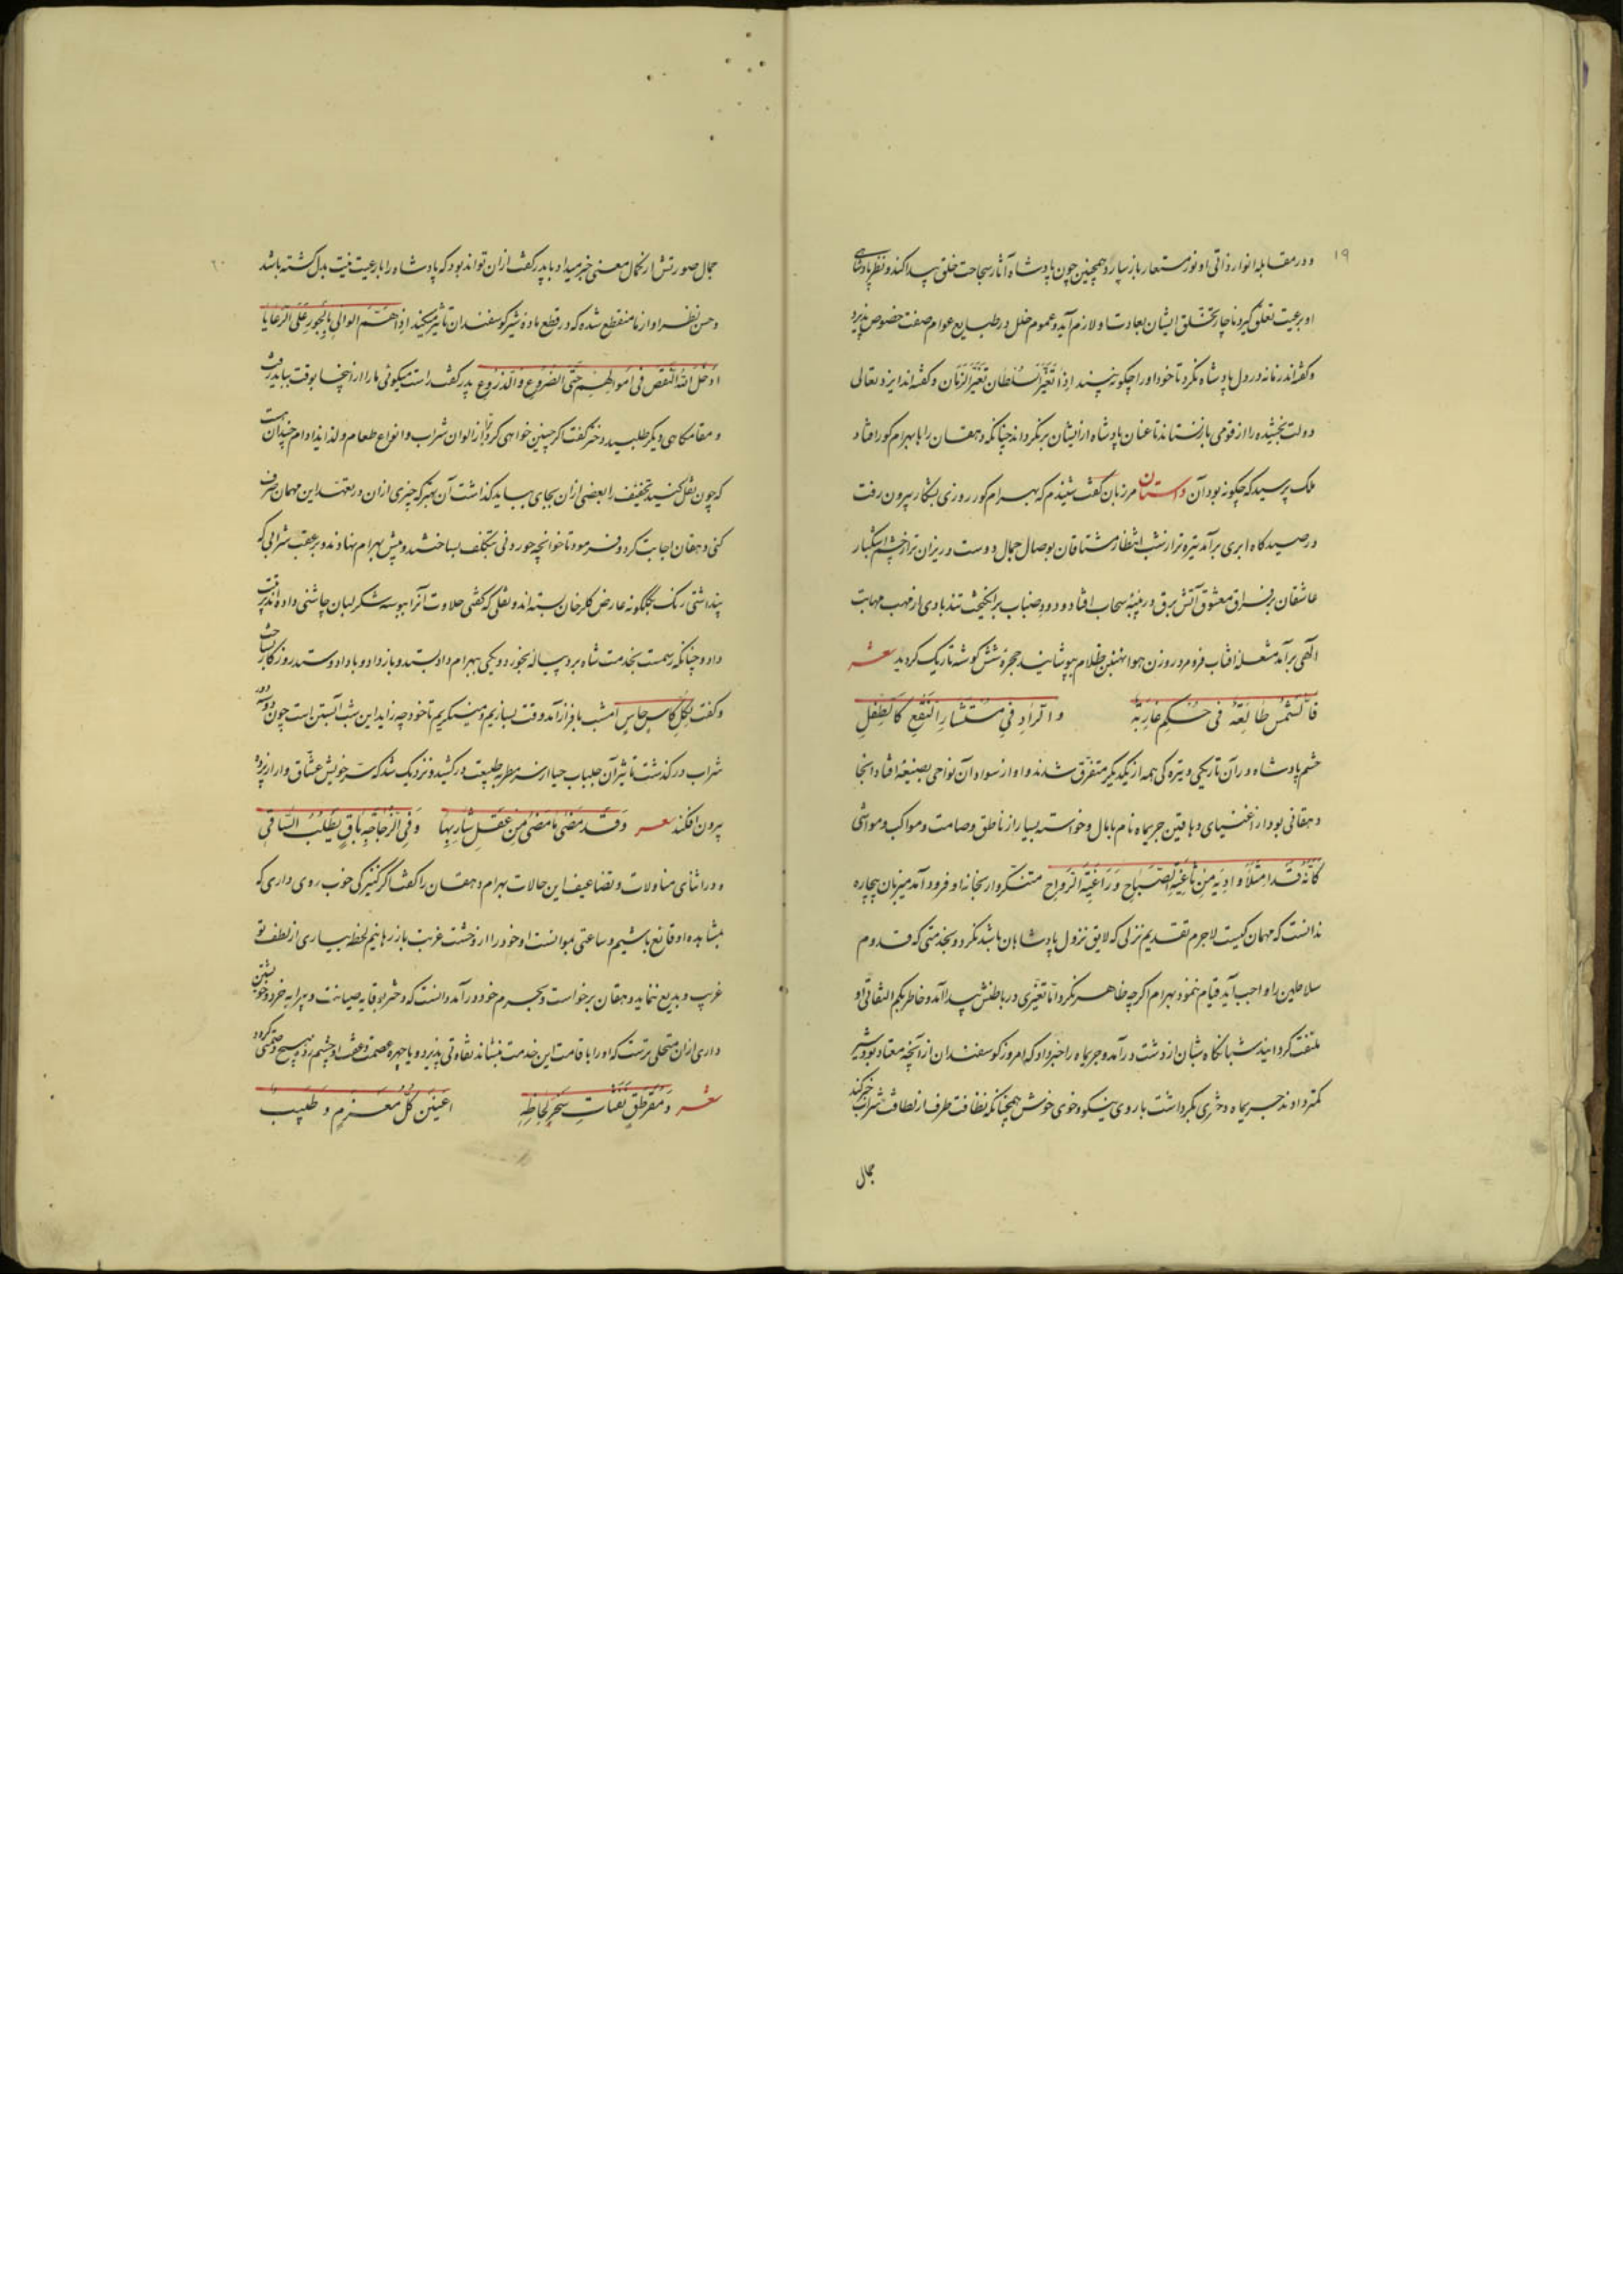 ۱۹
و در مقابله انوار ذاتی او نور مستعار باز سپارد همچنین چون پادشاه آثار سجاحت خلق پیدا کند و نظر پادشاهی
او بر عیت تعلق گیرد ناچار تخلّق ایشان بعادت او لازم آید و عموم خلل در طبایع عوام صفت خصوص پذیرد
و گفته‌اند زمانه در دل پادشاه نگرد تا خود او را چگونه بیند اِذا تَغَیَّرَ السُلطان تَغَیَّرَ الزَمان و گفته اند ایزد تعالی
دولت بخشیده را از قومی باز نستاند تا عنان پادشاه از ایشان برنگرداند چنانکه دهقان را با بهرام گور افتاد
ملک پرسید که چگونه بود آن داستان مرزبان گفت شنیدم که بهرام گور روزی بشکار بیرون رفت
در صیدگاه ابری برآمد تیره تر از شب انتظار مشتاقان بوصال جمال دوست و ریزان تر از چشم اشکبار
عاشقان بر فراق معشوق آتش برق در پنبه سحاب افتاد و دود ضباب برانگیخت تند بادی از مهب مهابت
الهی برآمد مشعله افتاب فرو مرد روزن هوا بنهنبن ظلام بپوشانید حجره شش گوشه تاریک گردید شعر
فَالشَمْسُ طالِعَةٌ فی حُکمِ غارِبَة و الرَادِ فی مُسْتَثارِ النَقْعِ کَالطَفَلِ
حشم پادشاه در آن تاریکی و تیره کی همه از یکدیگر متفرّق شدند و او از سواد آن نواحی بضیعهٔ افتاد آنجا
دهقانی بود از اغنیای دهاقین خریماه نام با مال و خواسته بسیار از ناطق و صامت و مواکب و مواشی
کَاَنّهُ قَدْ اِمْتَلَأ وادیه مِنْ ثاغِیَةِ الصَباحِ وَ راغِیَةِ الرَواحِ متنکّر وار بخانهٔ او فرود آمد میزبان بیچاره
ندانست که مهمان کیست لاجرم تقدیم نزلی که لایق نزول پادشاهان باشد نکرد و بخدمتی که قدوم
سلاطین را واجب آید قیام ننمود بهرام اگرچه ظاهر نکرد امّا تغیّری در باطنش پیدا آمد و خاطر بکم التفاتی او
ملتفت گردانید شبانگاه شبان از دشت درآمد و خریماه را خبر داد که امروز گوسفندان از آنچه معتاد بود شیر
کمتر دادند خریماه دختری بکر داشت با روی نیکو و خوی خوش همچنانکه نظافت ظرف از لطافت شراب خبر کند
جمال
۲۰
جمال صورتش از کمال معنی خبر میداد با پدر گفت از ان تواند بود که پادشاه را با رعیت نیت بدل گشته باشد
و حسن نظر او از ما منقطع شده که در قطع مادهٔ شیر گوسفندان تاثیر میکند اِذا هَمَّ الوالی بِالجَورِ عَلَی الرَعایا
اَدْخَلَ اللهُ النَقْصَ فی اَموالِهِم حَتّی الضُروعِ وَ الزُرُوعِ پدر گفت راست میگوئی ما را از اینجا بوقت بباید رفت
و مقامگاهی دیگر طلبید دختر گفت اگر چنین خواهی کرد تُرا از الوان شراب و انواع طعام و لذایذ ادام چندان هست
که چون نقل کنید تخفیف را بعضی از ان بجای بباید گذاشت آن بهتر که چیزی از ان در تعهّد این مهمان صرف
کنی دهقان اجابت کرد و فرمود تا خوانچه خوردنی بتکلّف بساختند و پیش بهرام نهادند و بر عقب شرابی که
پنداشتی رنک بگلگونه عارض گلرخان بسته‌اند و نقلی که گفتی حلاوت آنرا ببوسه شکر لبان چاشنی داده اند ترتیب
داد و چنانکه رسمست بخدمت شاه برد پیاله بخورد و یکی ببهرام داد بستد و باز داد و با داد و ستد روزگار بساخت
و گفت لِکُلِّ کاسٍ حاسٍ امشب با فراز آمد وقت بسازیم و مینگریم تا خود چه زاید این شب آبستن است چون دو سه دور
شراب درگذشت تاثیر آن جلباب حیا از سر مطربه طبیعت درکشید و نزدیک شد که سرّ خویش عشّاق وار از پرده
بیرون افکند شعر وَ قَد مَضی ما مَضی مِنْ عَقلِ شارِبِها وَ فی الزُجاجَةِ باقٍ یَطْلُبُ السَاقی
و در اثنای مناولات و تضاعیف این حالات بهرام دهقان را گفت اگر کنیزکی خوب روی داری که
بمشاهده او قانع باشیم و ساعتی بموانست او خود را از وحشت غربت باز رهانیم لحظه بیاری از لطف تو
غریب و بدیع ننماید دهقان برخواست و بحرم خود درآمد دانست که دختر بوقایه صیانت و پیرایه خرد و خویشتن
داری از ان متحلی ترست که او را باقامت این خدمت بنشاند تفاوتی پذیرد و یا چهره عصمت و عفت او بچشم زد هیچ وصمتی گردد
شعر وَ مُقَرْطَقٍ نَفَثاتِ سِحْرِ لِحاظِهِ اَعْیَیْنَ کُلَّ مُعَزِّمٍ وَ طَبیبٍ